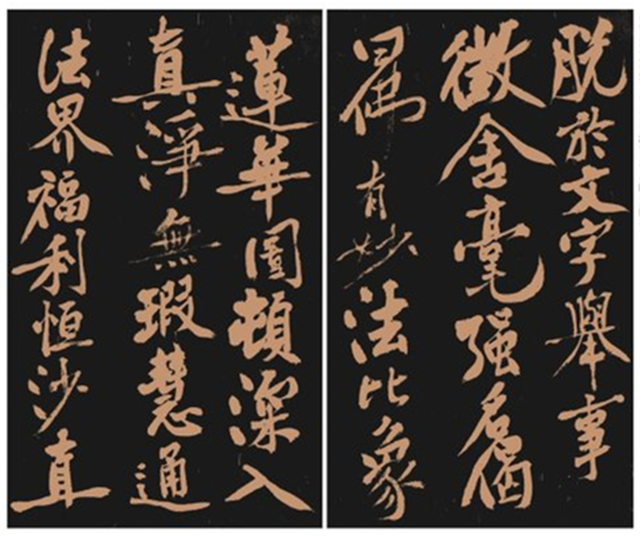 脱於文字舉事
徵舍毫强名
屬有妙法比象
蓮華圖頓深入
真淨無瑕慧通
法界福利恒沙直